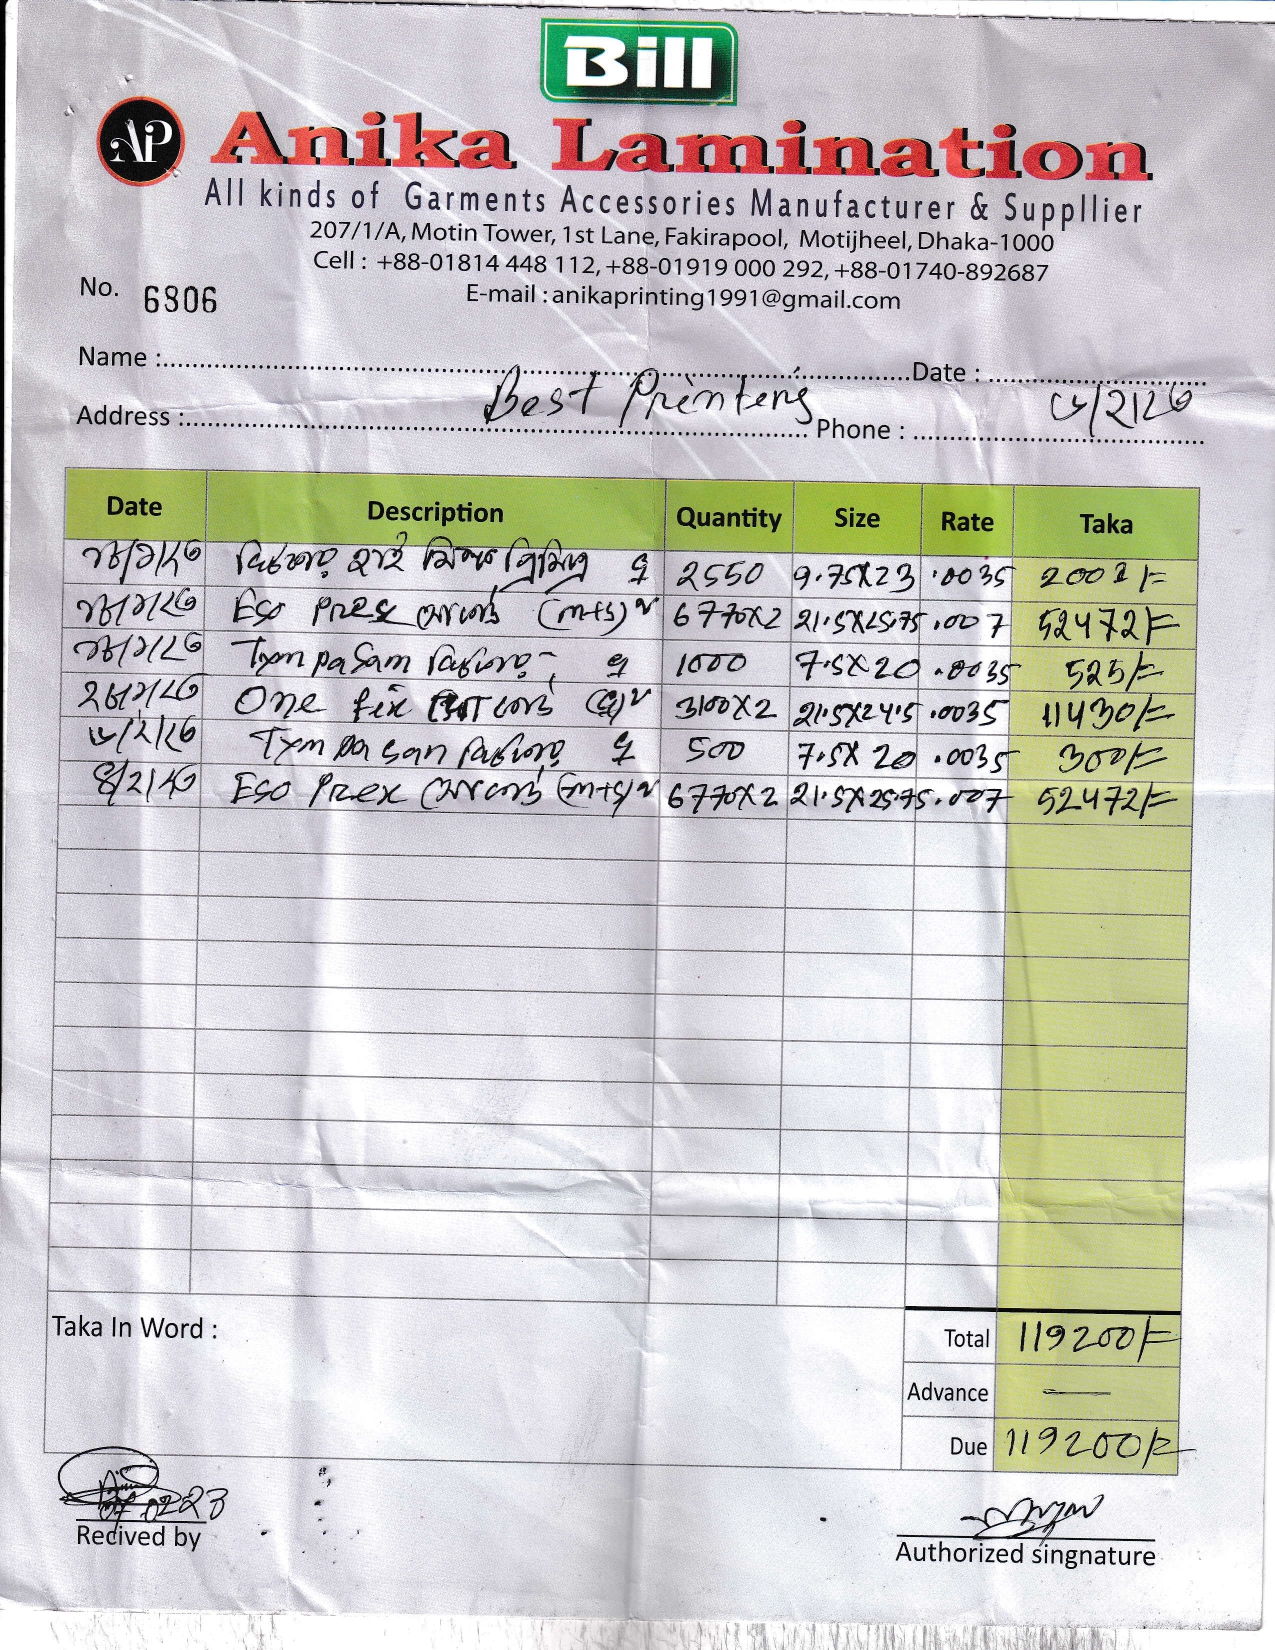 Bill
AP Anika Lamination
All kinds of Garments Accessories Manufacturer & Suppllier
207/1/A, Motin Tower, 1st Lane, Fakirapool, Motijheel, Dhaka-1000
Cell : +88-01814 448 112, +88-01919 000 292, +88-01740-892687
No. 6806 E-mail : anikaprinting1991@gmail.com
Name : Best Printers Date :
Address : Phone :
Date Description Quantity Size Rate Taka
2550 9.75X23 .0035 2001/=
Eso Prex (m+s) 6770X2 21.5X25.75 .007 52472/=
1000 7.5X20 .0035 525/=
One fix 3100X2 21.5X24.5 .0035 11430/=
500 7.5X20 .0035 300/=
Eso Prex (m+s) 6770X2 21.5X25.75 .007 52472/=
Taka In Word :
Total 119200/=
Advance —
Due 119200/=
Recived by
Authorized singnature